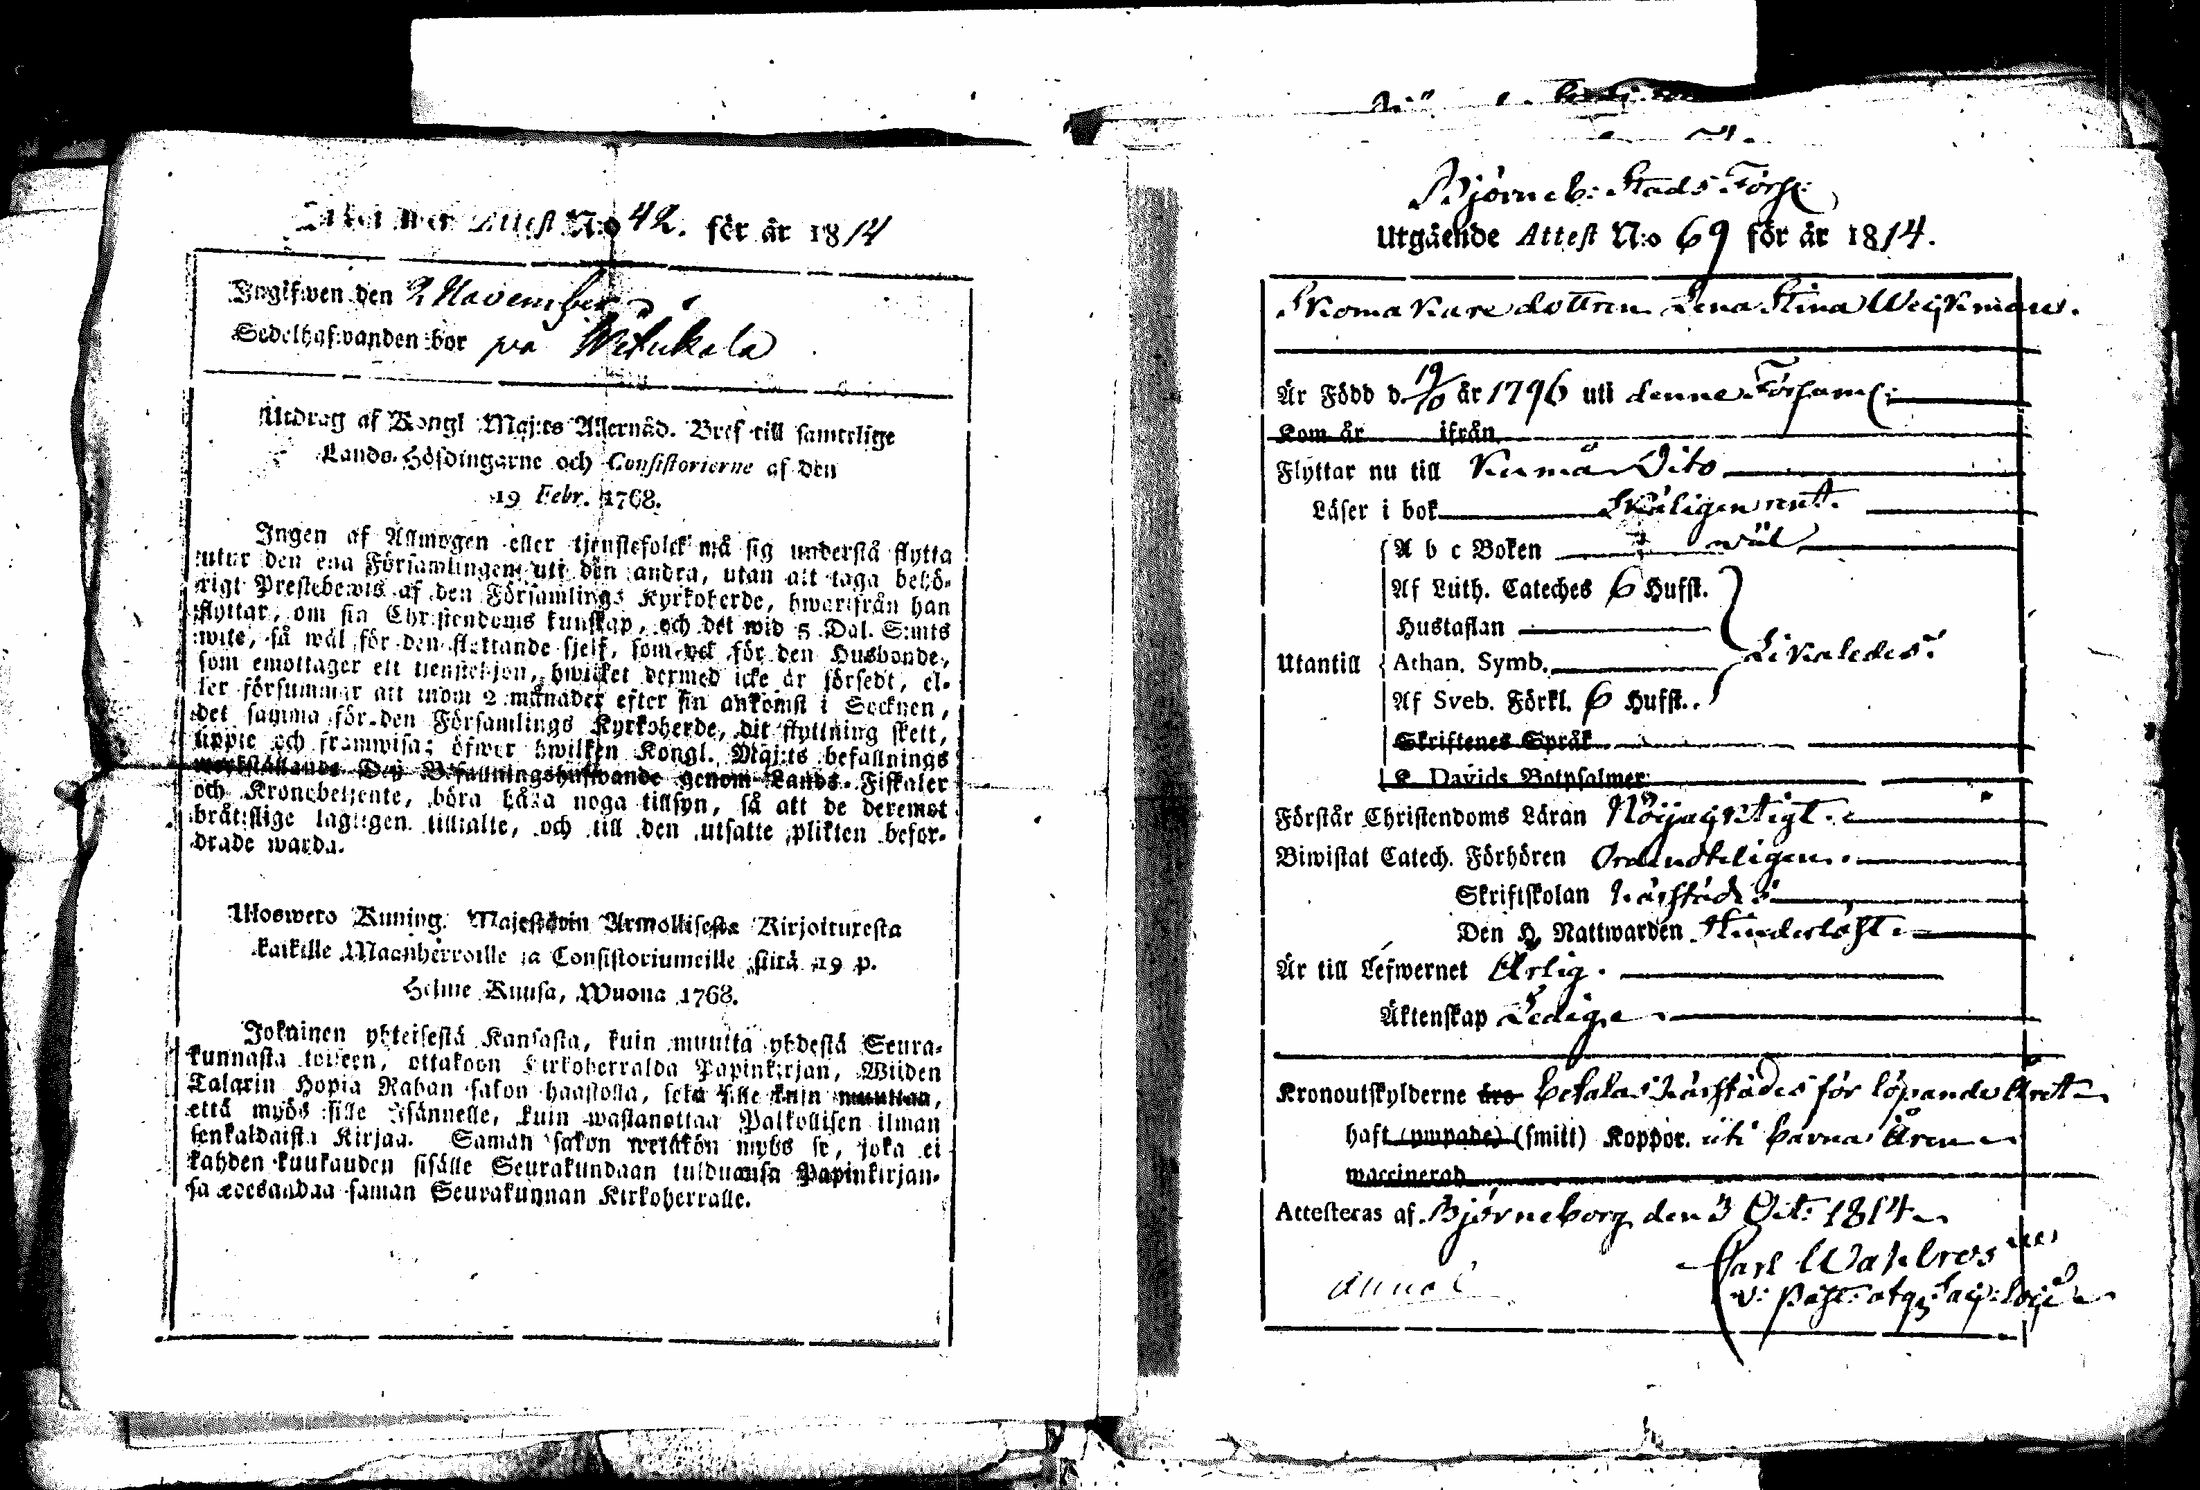 Attest N:o 42. för år 1814
Ingifwen den 2 November
Sedelhafwanden bor på
Utdrag af Kongl Maj:ts Allernåd. Bref till samtelige
Lands-Höfdingarne och Consistorierne af den
19 Febr. 1768.
Ingen af Allmogen eller tjenstefolck må sig understå flytta
utur den ena Församlingen uti den andra, utan att taga behö-
rigt Prestebewis af den Församlings Kyrkoherde, hwarifrån han
flyttar, om sin Christendoms kunskap, och det wid 5 Dal. S:mts
wite, så wäl för den flyttande sjelf, som ock för den Husbonde,
som emottager ett tienstehjon, hwilket dermed icke är försedt, el-
ler försummar att inom 2 månader efter sin ankomst i Socknen,
det samma för den Församlings Kyrkoherde, dit flyttning skett,
uppte och framwisa; öfwer hwilken Kongl. Maj:ts befallnings
werkställande Dess Befallningshafwande genom Lands-Fiskaler
och Kronobetjente, böra hafwa noga tillsyn, så att de deremot
bråtslige lagligen tilltalte, och till den utsatte plikten befor-
drade warda.
Ulosweto Kuning. Majestätin Armollisesta Kirjoituxesta
kaikille Maanherroille ja Consistoriumeille siitä 19 p.
Helme Kuusa, Wuona 1768.
Jokainen yhteisestä Kansasta, kuin muutta yhdestä Seura-
kunnasta toiseen, ottakoon Kirkoherralda Papinkirjan, Wiiden
Talarin Hopia Rahan sakon haastolla, sekä sille kuin muuttaa,
että myös sille Isännelle, kuin wastanottaa Palkollisen ilman
senkaldaista Kirjaa. Saman sakon wetäkön myös se, joka ei
kahden kuukauden sisälle Seurakundaan tulduansa Papinkirjan-
sa edesandaa saman Seurakunnan Kirkoherralle.
Björneb: Stads Förs:
Utgående Attest N:o 69 för år 1814.
Skomakare dottren Lena Stina Weijkman.
Är Född d. 19/10 år 1796 uti denne Församl:
Kom år ifrån
Flyttar nu till Kumå Dito
Läser i bok Skäligen rent.
A b c Boken wäl
Af Luth. Cateches 6 Hufst.
Hustaflan
Utantill Athan. Symb. Likaledes.
Af Sveb. Förkl. 6 Hufst..
Skriftenes Språk
K. Davids Botpsalmer
Förstår Christendoms Läran Nöijagtigt.
Biwistat Catech. Förhören Ordenteligen.
Skriftskolan härstädes
Den H. Nattwarden
Är till Lefwernet Ärlig.
Äktenskap Ledig
Kronoutskylderne äro betalas härstädes för löpande året
haft (ympade) (smitt) Koppor. uti barna åren
waccinerad
Attesteras af Björneborg den 3 Oct: 1814
Carl